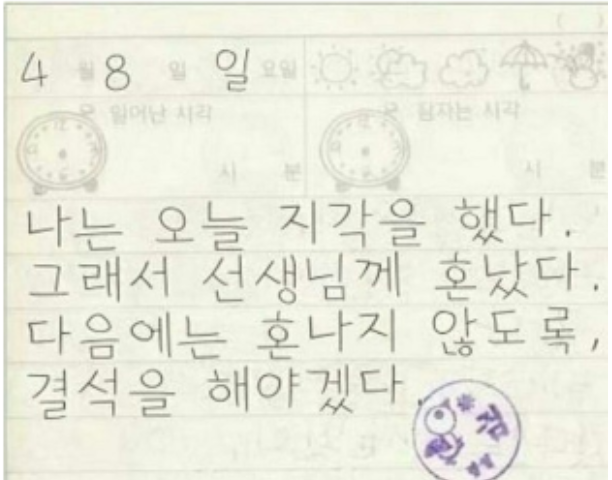 4 월 8 일 일 요일
오 일어난 시각 오 잠자는 시각
시 분 시 분
나는 오늘 지각을 했다.
그래서 선생님께 혼났다.
다음에는 혼나지 않도록,
결석을 해야겠다.